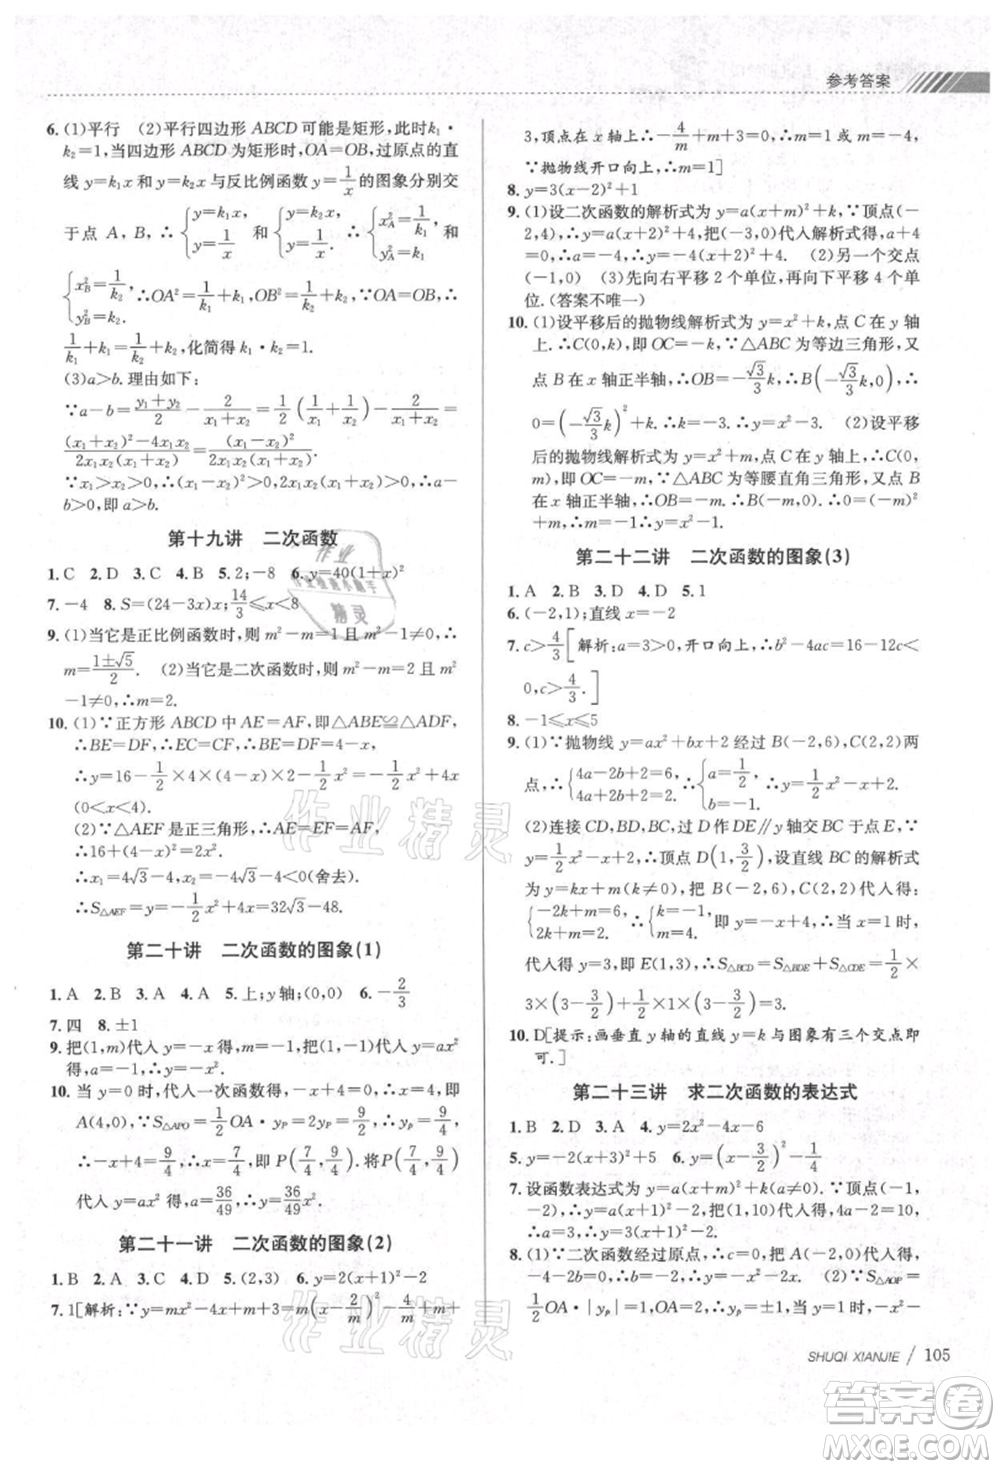 参考答案
6. (1)平行　(2)平行四边形 ABCD 可能是矩形,此时 k₁·
k₂=1,当四边形 ABCD 为矩形时,OA=OB,过原点的直
线 y=k₁x 和 y=k₂x 与反比例函数 y=1/x 的图象分别交
于点 A,B,∴{y=k₁x y=1/x 和 {y=k₂x y=1/x ∴{x²_A=1/k₁ y²_A=k₁ 和
{x²_B=1/k₂ y²_B=k₂ ∴OA²=1/k₁+k₁,OB²=1/k₂+k₂.∴1/k₁+k₁=
1/k₂+k₂,化简得 k₁·k₂=1.
(3)a>b.理由如下:
∵a-b=(y₁+y₂)/2-2/(x₁+x₂)=1/2(1/x₁+1/x₂)-2/(x₁+x₂)=
((x₁+x₂)²-4x₁x₂)/(2x₁x₂(x₁+x₂))=(x₁-x₂)²/(2x₁x₂(x₁+x₂)).
∵x₁>x₂>0,∴(x₁-x₂)²>0,x₁x₂>0,x₁+x₂>0,∴a-
b>0,即 a>b.
第十九讲　二次函数
1. C　2. D　3. C　4. B　5. 2;-8　6. y=40(1+x)²
7. -4　8. S=(24-3x)x;14/3≤x<8
9. (1)当它是正比例函数时,则 m²-m-1=0,∴
m=(1±√5)/2.　(2)当它是二次函数时,m²-m=2,m
+1≠0,∴m=2.
10. (1)∵正方形 ABCD 中 AE=AF,即△ABE≌△ADF,
∴BE=DF,∴EC=CF=x,∴BE=DF=4-x,
∴y=16-1/2×4×(4-x)×2-1/2x²=-1/2x²+4x
(0<x<4).
(2)∵△AEF 是正三角形,∴AE=EF=√2x,
∴16+(4-x)²=2x².
∴x₁=4√3-4,x₂=-4√3-4(舍去).
∴S△AEF=y=-1/2x²+4x=32√3-48.
第二十讲　二次函数的图象(1)
1. A　2. B　3. A　4. A　5. 上;y 轴;(0,0)　6. -2/3
7. 四　8. ±1
9. 把(1,m)代入 y=-x 得,m=-1.把(1,-1)代入 y=ax²
得,a=-1.∴y=-x².
10. 当 y=0时,代入一次函数得,-x+4=0,∴x=4,即
A(4,0).∵S△APO=1/2OA·yP=2yP=9/2,∴yP=9/4,
∴-x+4=9/4,∴x=7/4,即 P(7/4,9/4).将P(7/4,9/4)
代入 y=ax²得,a=36/49,∴y=36/49x².
第二十一讲　二次函数的图象(2)
1. B　2. C　3. A　4. D　5. (2,3)　6. y=2(x+1)²-2
7. 1[解析:∵y=mx²-4x+m+3=m(x-2/m)²-4/m+m+
3,顶点在 x 轴上∴-4/m+m+3=0,∴m=1 或 m=-4,
∵抛物线开口向上,∴m=1]
8. y=3(x-2)²+1
9. (1)设二次函数的解析式为 y=a(x+m)²+k,∵顶点(-
2,4),∴y=a(x+2)²+4,把(-3,0)代入解析式得,a+4
=0,∴a=-4,∴y=-4(x+2)²+4.　(2)另一个交点
(-1,0)　(3)先向右平移 2 个单位,再向下平移 4 个单
位.(答案不唯一)
10. (1)设平移后的抛物线解析式为 y=x²+k,点 C 在 y 轴
上.∴C(0,k),即 OC=-k.∵△ABC 为等边三角形,又
点 B 在 x 轴正半轴,∴OB=-√3/3k,∴B(-√3/3k,0),∴
0=(-√3/3k)²+k,∴k=-3.∴y=x²-3.　(2)设平移
后的抛物线解析式为 y=x²+m,点 C 在 y 轴上,∴C(0,
m),即OC=-m.∵△ABC 为等腰直角三角形,又点 B
在x轴正半轴,∴OB=-m.∴B(-m,0),∴0=(-m)²
+m,∴m=-1,∴y=x²-1.
第二十二讲　二次函数的图象(3)
1. A　2. B　3. D　4. D　5. 1
6. (-2,1);直线 x=-2
7. c>4/3[解析:a=3>0,开口向上,∴b²-4ac=16-12c<
0,∴c>4/3.]
8. -1≤x≤5
9. (1)∵抛物线 y=ax²+bx+2 经过 B(-2,6),C(2,2)两
点,∴{4a-2b+2=6 4a+2b+2=2 ∴{a=1/2 b=-1. ∴y=1/2x²-x+2.
(2)连接 CD,BD,BC,过 D 作 DE∥y 轴交 BC 于点 E,∵
y=1/2x²-x+2,∴顶点 D(1,3/2),设直线 BC 的解析式
为 y=kx+m(k≠0),把 B(-2,6),C(2,2)代入得:
{-2k+m=6 2k+m=2 ∴{k=-1, m=4. 即 y=-x+4,∴当 x=1 时,
代入得:y=3,即 E(1,3),∴S△BCD=S△BDE+S△CDE=1/2×
3×(3-3/2)+1/2×1×(3-3/2)=3.
10. D[提示:画垂直 y 轴的直线 y=k 与图象有三个交点即
可.]
第二十三讲　求二次函数的表达式
1. B　2. D　3. A　4. y=2x²-4x-6
5. y=-2(x-3)²+5　6. y=-3/2(x-1)²+3/2
7. 设函数表达式为 y=a(x+1)²-2(a≠0),∵顶点(-1,
-2),∴y=a(x+1)²-2,把(1,10)代入得,4a-2=10,
∴a=3.∴y=3(x+1)²-2.
8. (1)∵二次函数经过原点,∴c=0,把 A(-2,0)代入得:
-4-2b=0,∴b=-2,∴y=-x²-2x.　(2)∵S△AOP=
1/2OA·|yₚ|=3,∴|yₚ|=3,∴yₚ=±3,∵函数最大值
SHUQI XIANJIE / 105
作业精灵
作业精灵
答案圈
MXQE.COM